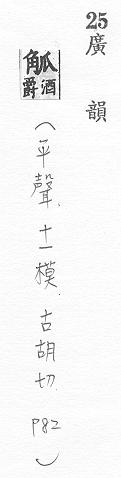 25廣韻
觚酒爵（平聲、十一模、古胡切 P82）